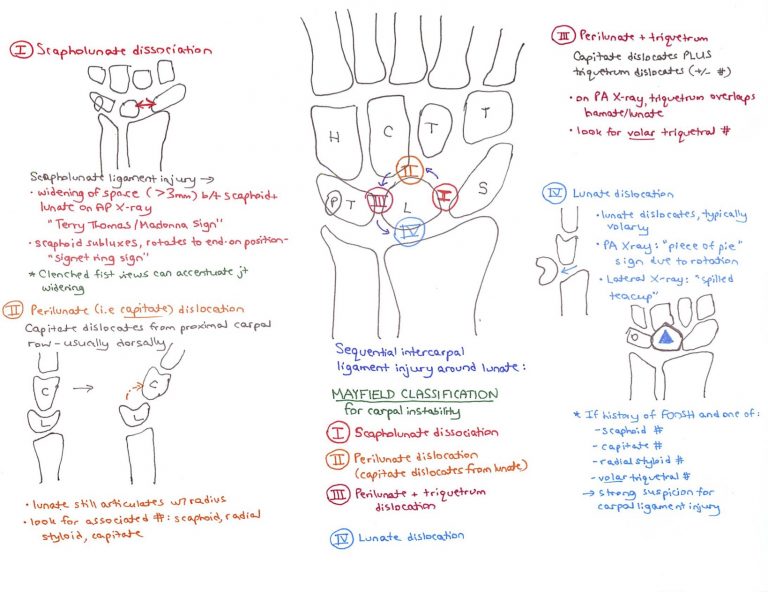 I Scapholunate dissociation
Scapholunate ligament injury →
• widening of space (>3mm) b/t scaphoid +
lunate on AP X-ray
"Terry Thomas/Madonna Sign"
• scaphoid subluxes, rotates to end-on position-
"signet ring sign"
* Clenched fist views can accentuate jt
widening
II Perilunate (i.e capitate) dislocation
Capitate dislocates from proximal carpal
row - usually dorsally
C
L
→
C
L
• lunate still articulates w/ radius
• look for associated #: scaphoid, radial
styloid, capitate
H
C
T
T
II
P
T
III
L
I
S
IV
Sequential intercarpal
ligament injury around lunate:
MAYFIELD CLASSIFICATION
for carpal instability
I Scapholunate dissociation
II Perilunate dislocation
(capitate dislocates from lunate)
III Perilunate + triquetrum
dislocation
IV Lunate dislocation
III Perilunate + triquetrum
Capitate dislocates PLUS
triquetrum dislocates (+/- #)
• on PA X-ray, triquetrum overlaps
hamate/lunate
• look for volar triquetral #
IV Lunate dislocation
• lunate dislocates, typically
volarly
• PA Xray: "piece of pie"
sign due to rotation
• Lateral X-ray: "spilled
teacup"
* If history of FOOSH and one of:
- scaphoid #
- capitate #
- radial styloid #
- volar triquetral #
→ strong suspicion for
carpal ligament injury